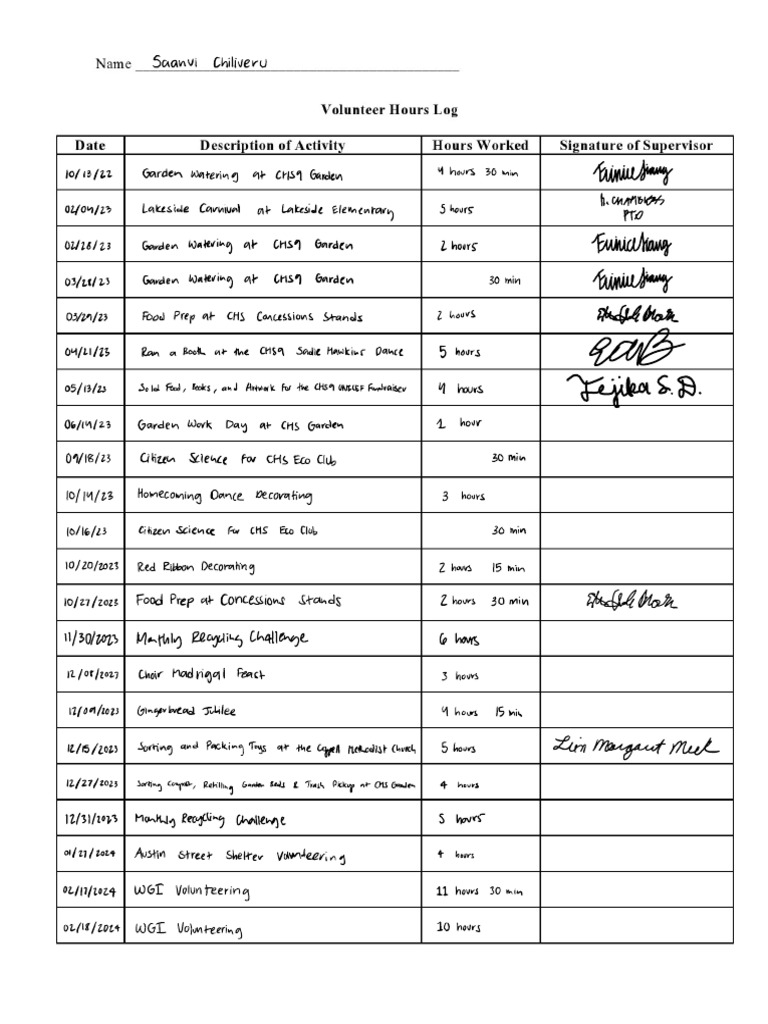 Name Saanvi Chiliveru
Volunteer Hours Log
Date Description of Activity Hours Worked Signature of Supervisor
10/13/22 Garden Watering at CHS9 Garden 4 hours 30 min Eunice Kang
02/04/23 Lakeside Carnival at Lakeside Elementary 5 hours B. CHAMBERS
PTO
02/28/23 Garden Watering at CHS9 Garden 2 hours Eunice Kang
03/28/23 Garden Watering at CHS9 Garden 30 min Eunice Kang
03/29/23 Food Prep at CHS Concessions Stands 2 hours
04/21/23 Ran a Booth at the CHS9 Sadie Hawkins Dance 5 hours
05/13/23 Sold Food, Books, and Artwork for the CHS9 UNICEF Fundraiser 4 hours Tejika S. D.
06/14/23 Garden Work Day at CHS Garden 1 hour
09/18/23 Citizen Science for CHS Eco Club 30 min
10/14/23 Homecoming Dance Decorating 3 hours
10/16/23 Citizen Science for CHS Eco Club 30 min
10/20/2023 Red Ribbon Decorating 2 hours 15 min
10/27/2023 Food Prep at Concessions Stands 2 hours 30 min
11/30/2023 Monthly Recycling Challenge 6 hours
12/08/2023 Choir Madrigal Feast 3 hours
12/09/2023 Gingerbread Jubilee 4 hours 15 min
12/15/2023 Sorting and Packing Toys at the Coppell Methodist Church 5 hours Margaret Meek
12/27/2023 Sorting Compost, Refilling Garden Beds & Trash Pickup at CHS Garden 4 hours
12/31/2023 Monthly Recycling Challenge 5 hours
01/27/2024 Austin Street Shelter Volunteering 4 hours
02/17/2024 WGI Volunteering 11 hours 30 min
02/18/2024 WGI Volunteering 10 hours